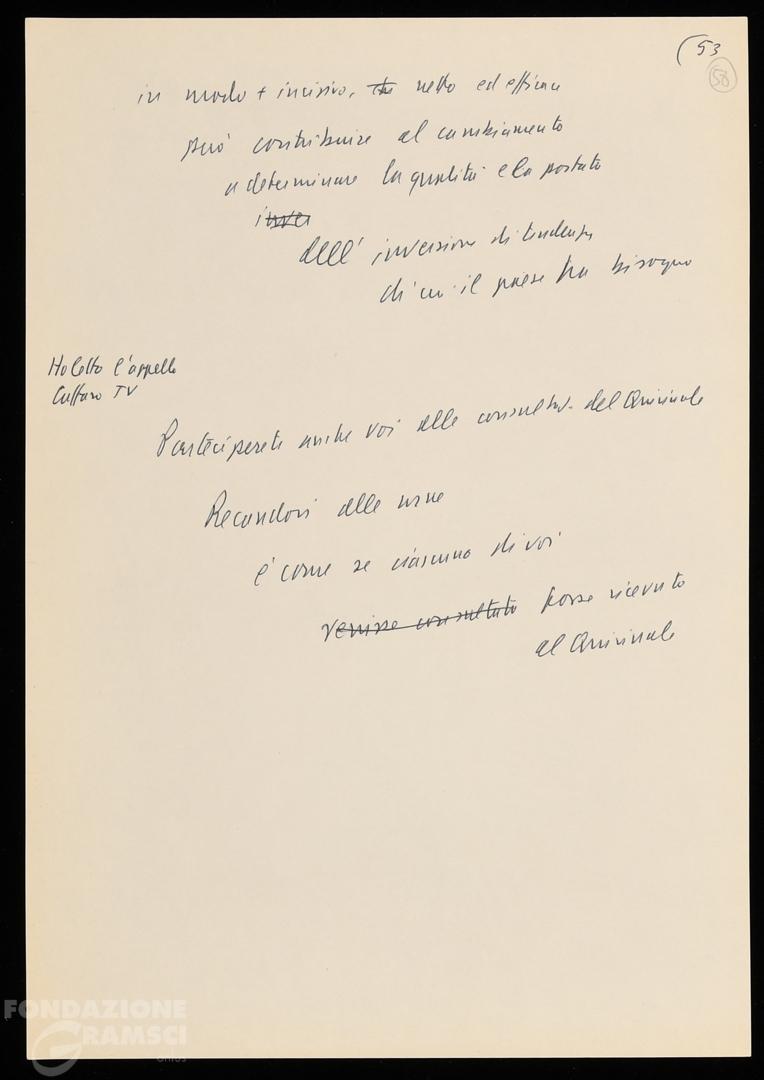 (53
58
in modo + incisivo, che netto ed efficace
può contribuire al cambiamento
a determinare la qualità e la portata
inver
dell' inversione di tendenza
di cui il paese ha bisogno
Ho letto l'appello
Cuffaro TV
Parteciperete anche voi alle consultaz. del Quirinale
Recandovi alle urne
è come se ciascuno di voi
venisse consultato fosse ricevuto
al Quirinale
FONDAZIONE
GRAMSCI
ONLUS